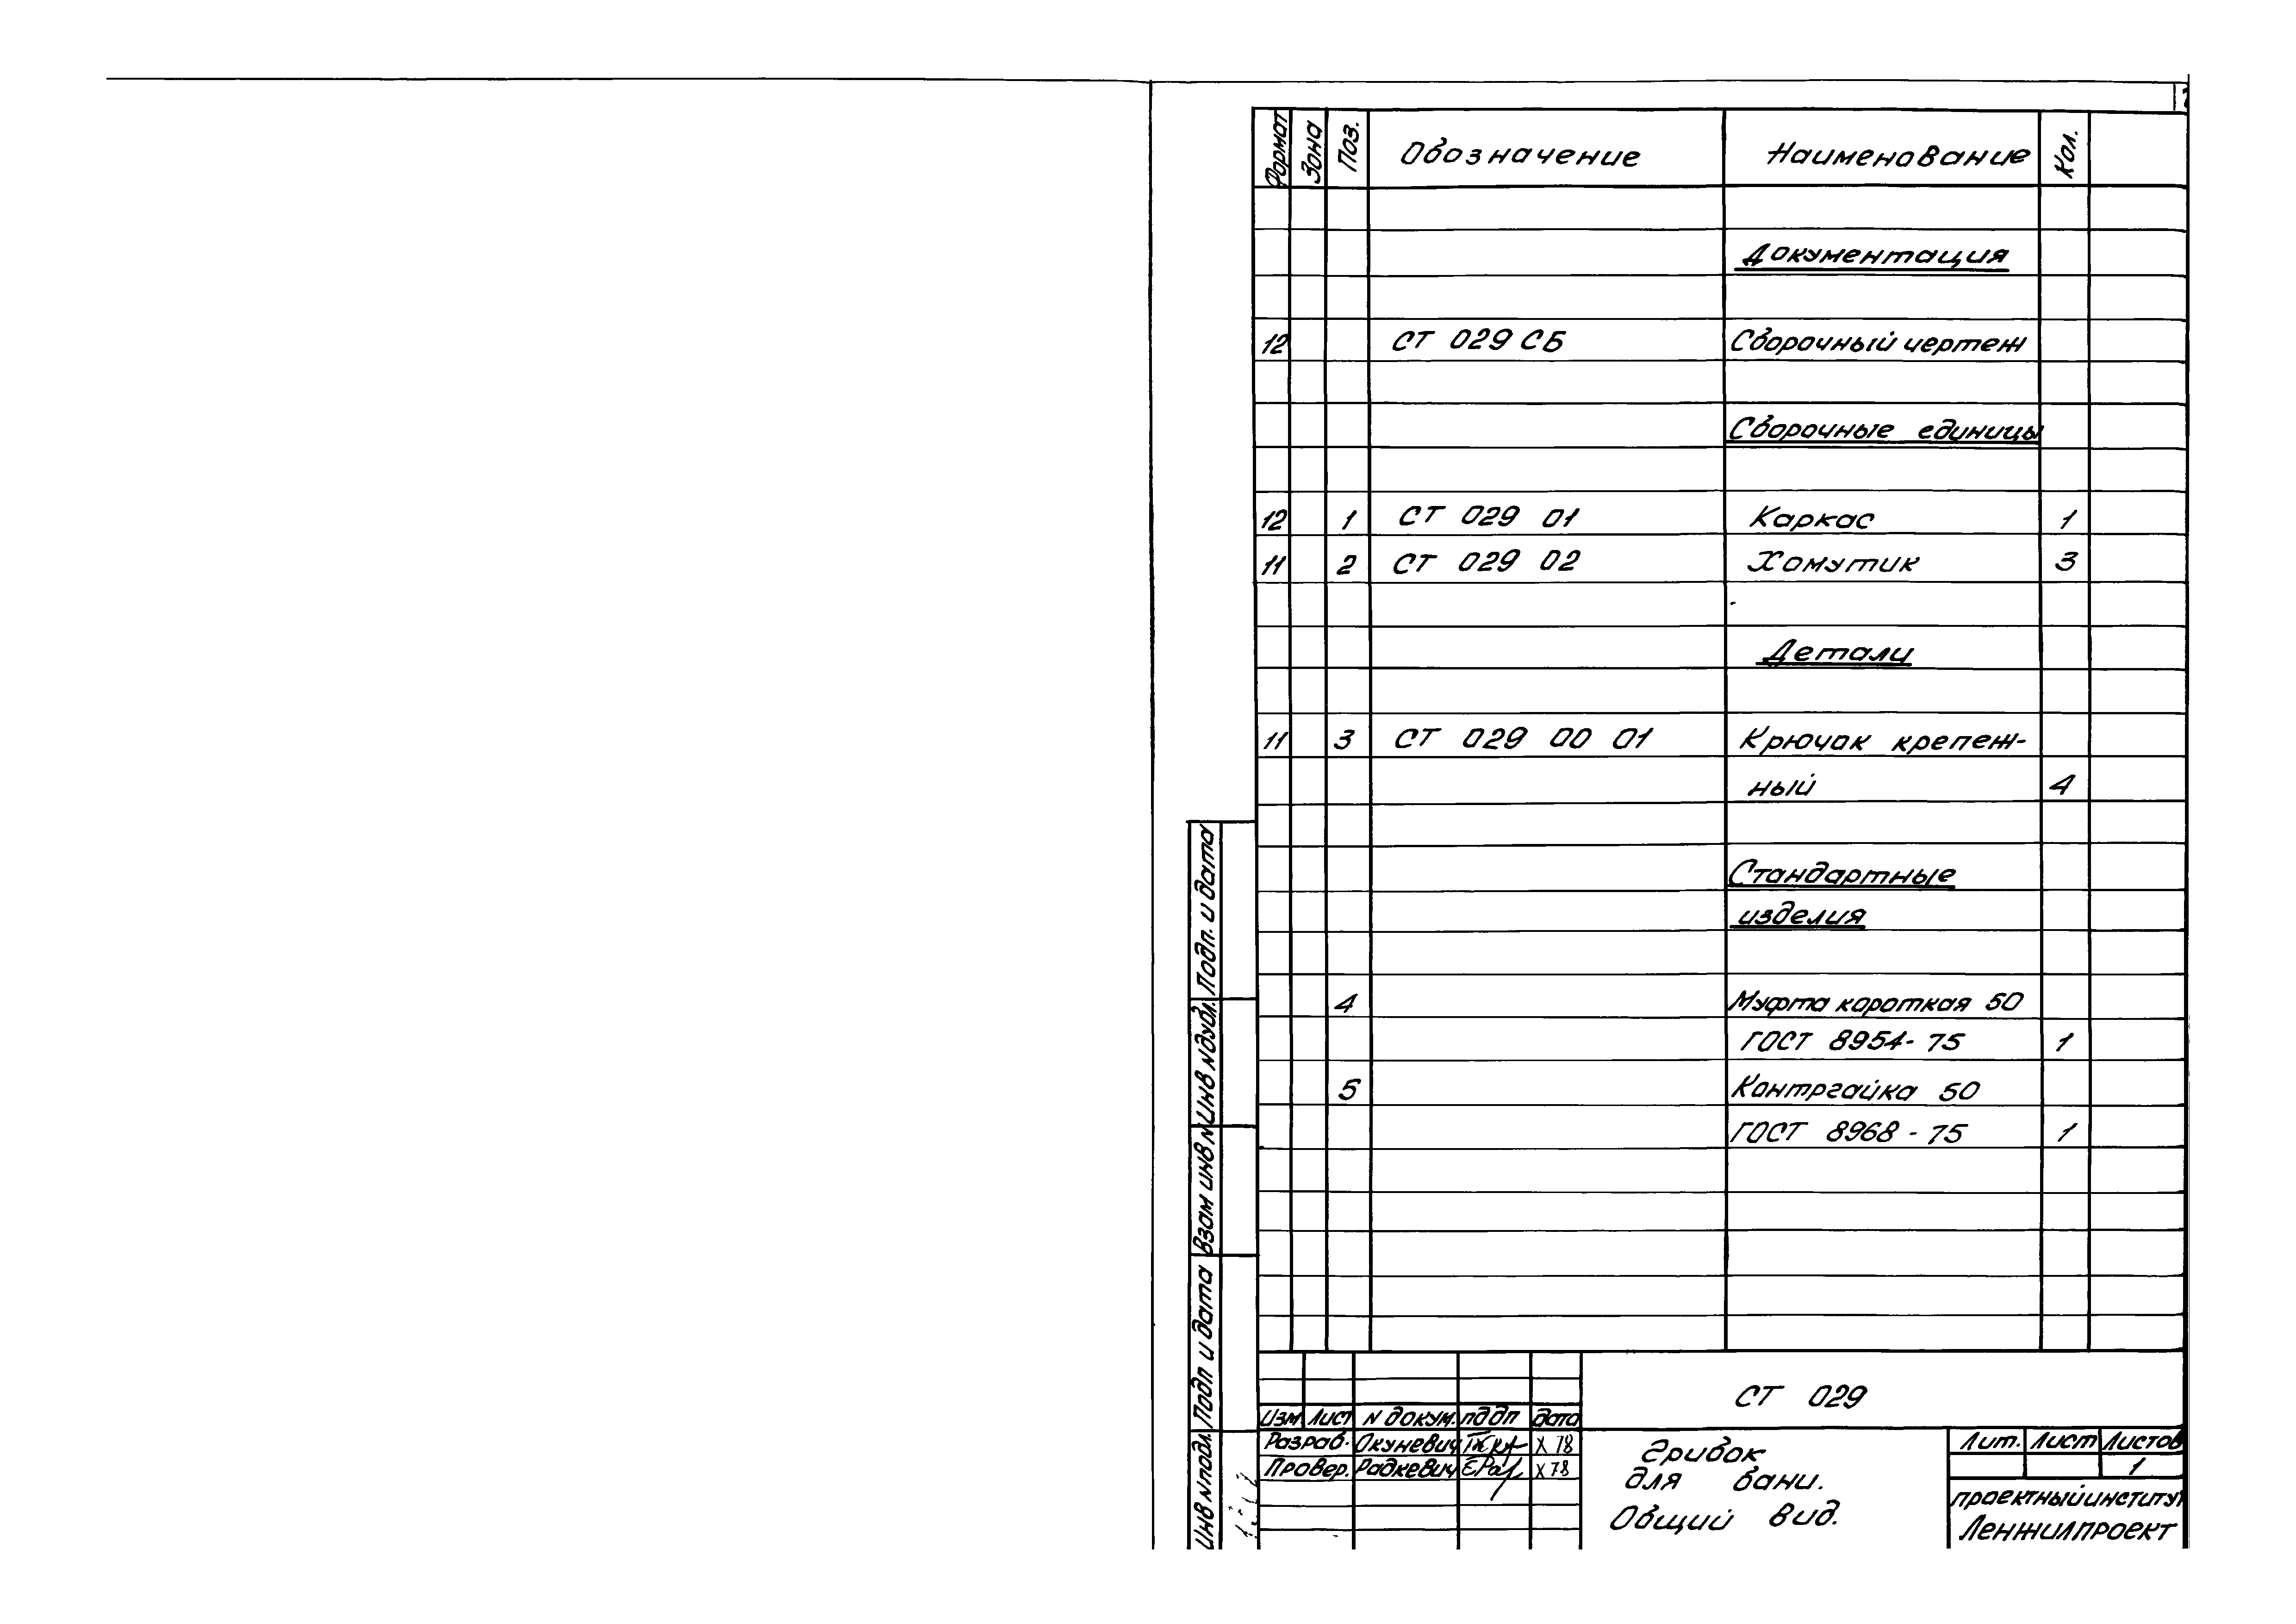 Формат Зона Поз. Обозначение Наименование Кол.
Документация
12 СТ 029 СБ Сборочный чертеж
Сборочные единицы
12 1 СТ 029 01 Каркас 1
11 2 СТ 029 02 Хомутик 3
Детали
11 3 СТ 029 00 01 Крючок крепеж-
ный 4
Стандартные
изделия
4 Муфта короткая 50
ГОСТ 8954-75 1
5 Контргайка 50
ГОСТ 8968-75 1
Подп. и дата
Инв N дубл.
Взам инв N
Подп и дата
Инв N подл.
СТ 029
Изм Лист N докум. подп дата
Разраб. Окуневич Х 78
Провер. Радкевич Х 78
Грибок
для бани.
Общий вид.
Лит. Лист Листов
1
проектный институт
Ленжилпроект